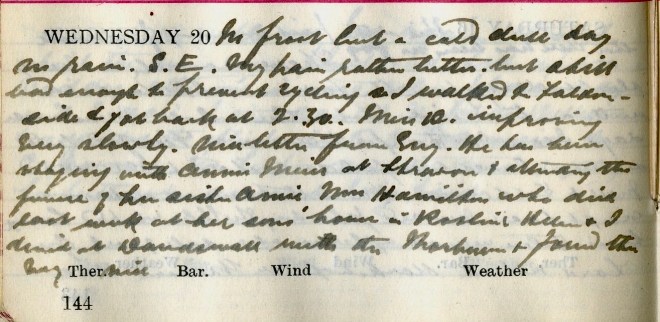 WEDNESDAY 20 No frost but a cold dull day
no rain. S.E. My pain rather better. but still
bad enough to prevent cycling so I walked to
side & got back at 2.30. Miss improving
very slowly. letter from He has been
staying with Annie at & attending the
funeral of her sister Mrs Hamilton who died
last week at her sons' house in Roslin Helen & I
dined at with the & found them
very Ther. nice Bar. Wind Weather
144